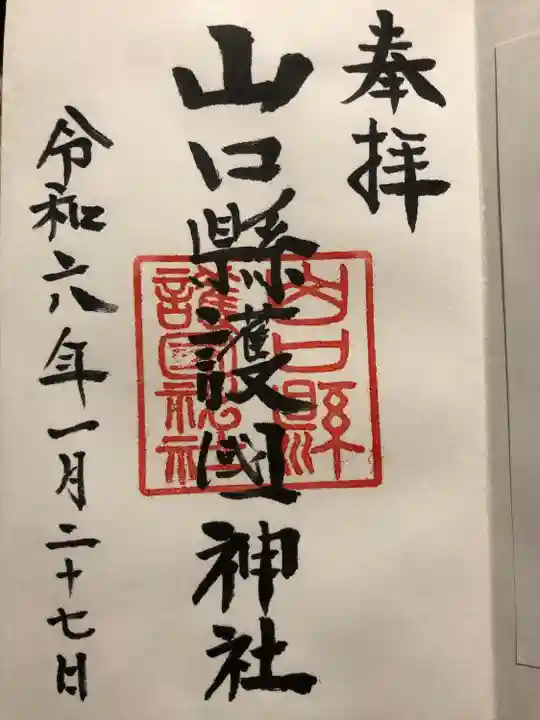 奉拝
山口縣護國神社
山口縣
護国神社
令和六年一月二十七日